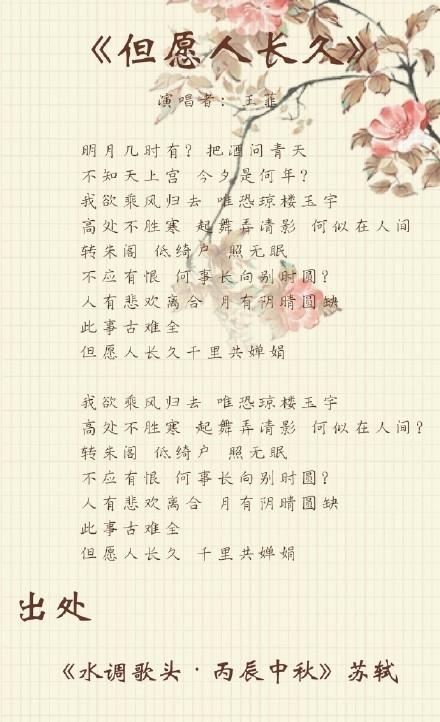 《但愿人长久》
演唱者：王菲
明月几时有？把酒问青天
不知天上宫 今夕是何年？
我欲乘风归去 唯恐琼楼玉宇
高处不胜寒 起舞弄清影 何似在人间
转朱阁 低绮户 照无眠
不应有恨 何事长向别时圆？
人有悲欢离合 月有阴晴圆缺
此事古难全
但愿人长久千里共婵娟
我欲乘风归去 唯恐琼楼玉宇
高处不胜寒 起舞弄清影 何似在人间？
转朱阁 低绮户 照无眠
不应有恨 何事长向别时圆？
人有悲欢离合 月有阴晴圆缺
此事古难全
但愿人长久 千里共婵娟
出处
《水调歌头·丙辰中秋》苏轼